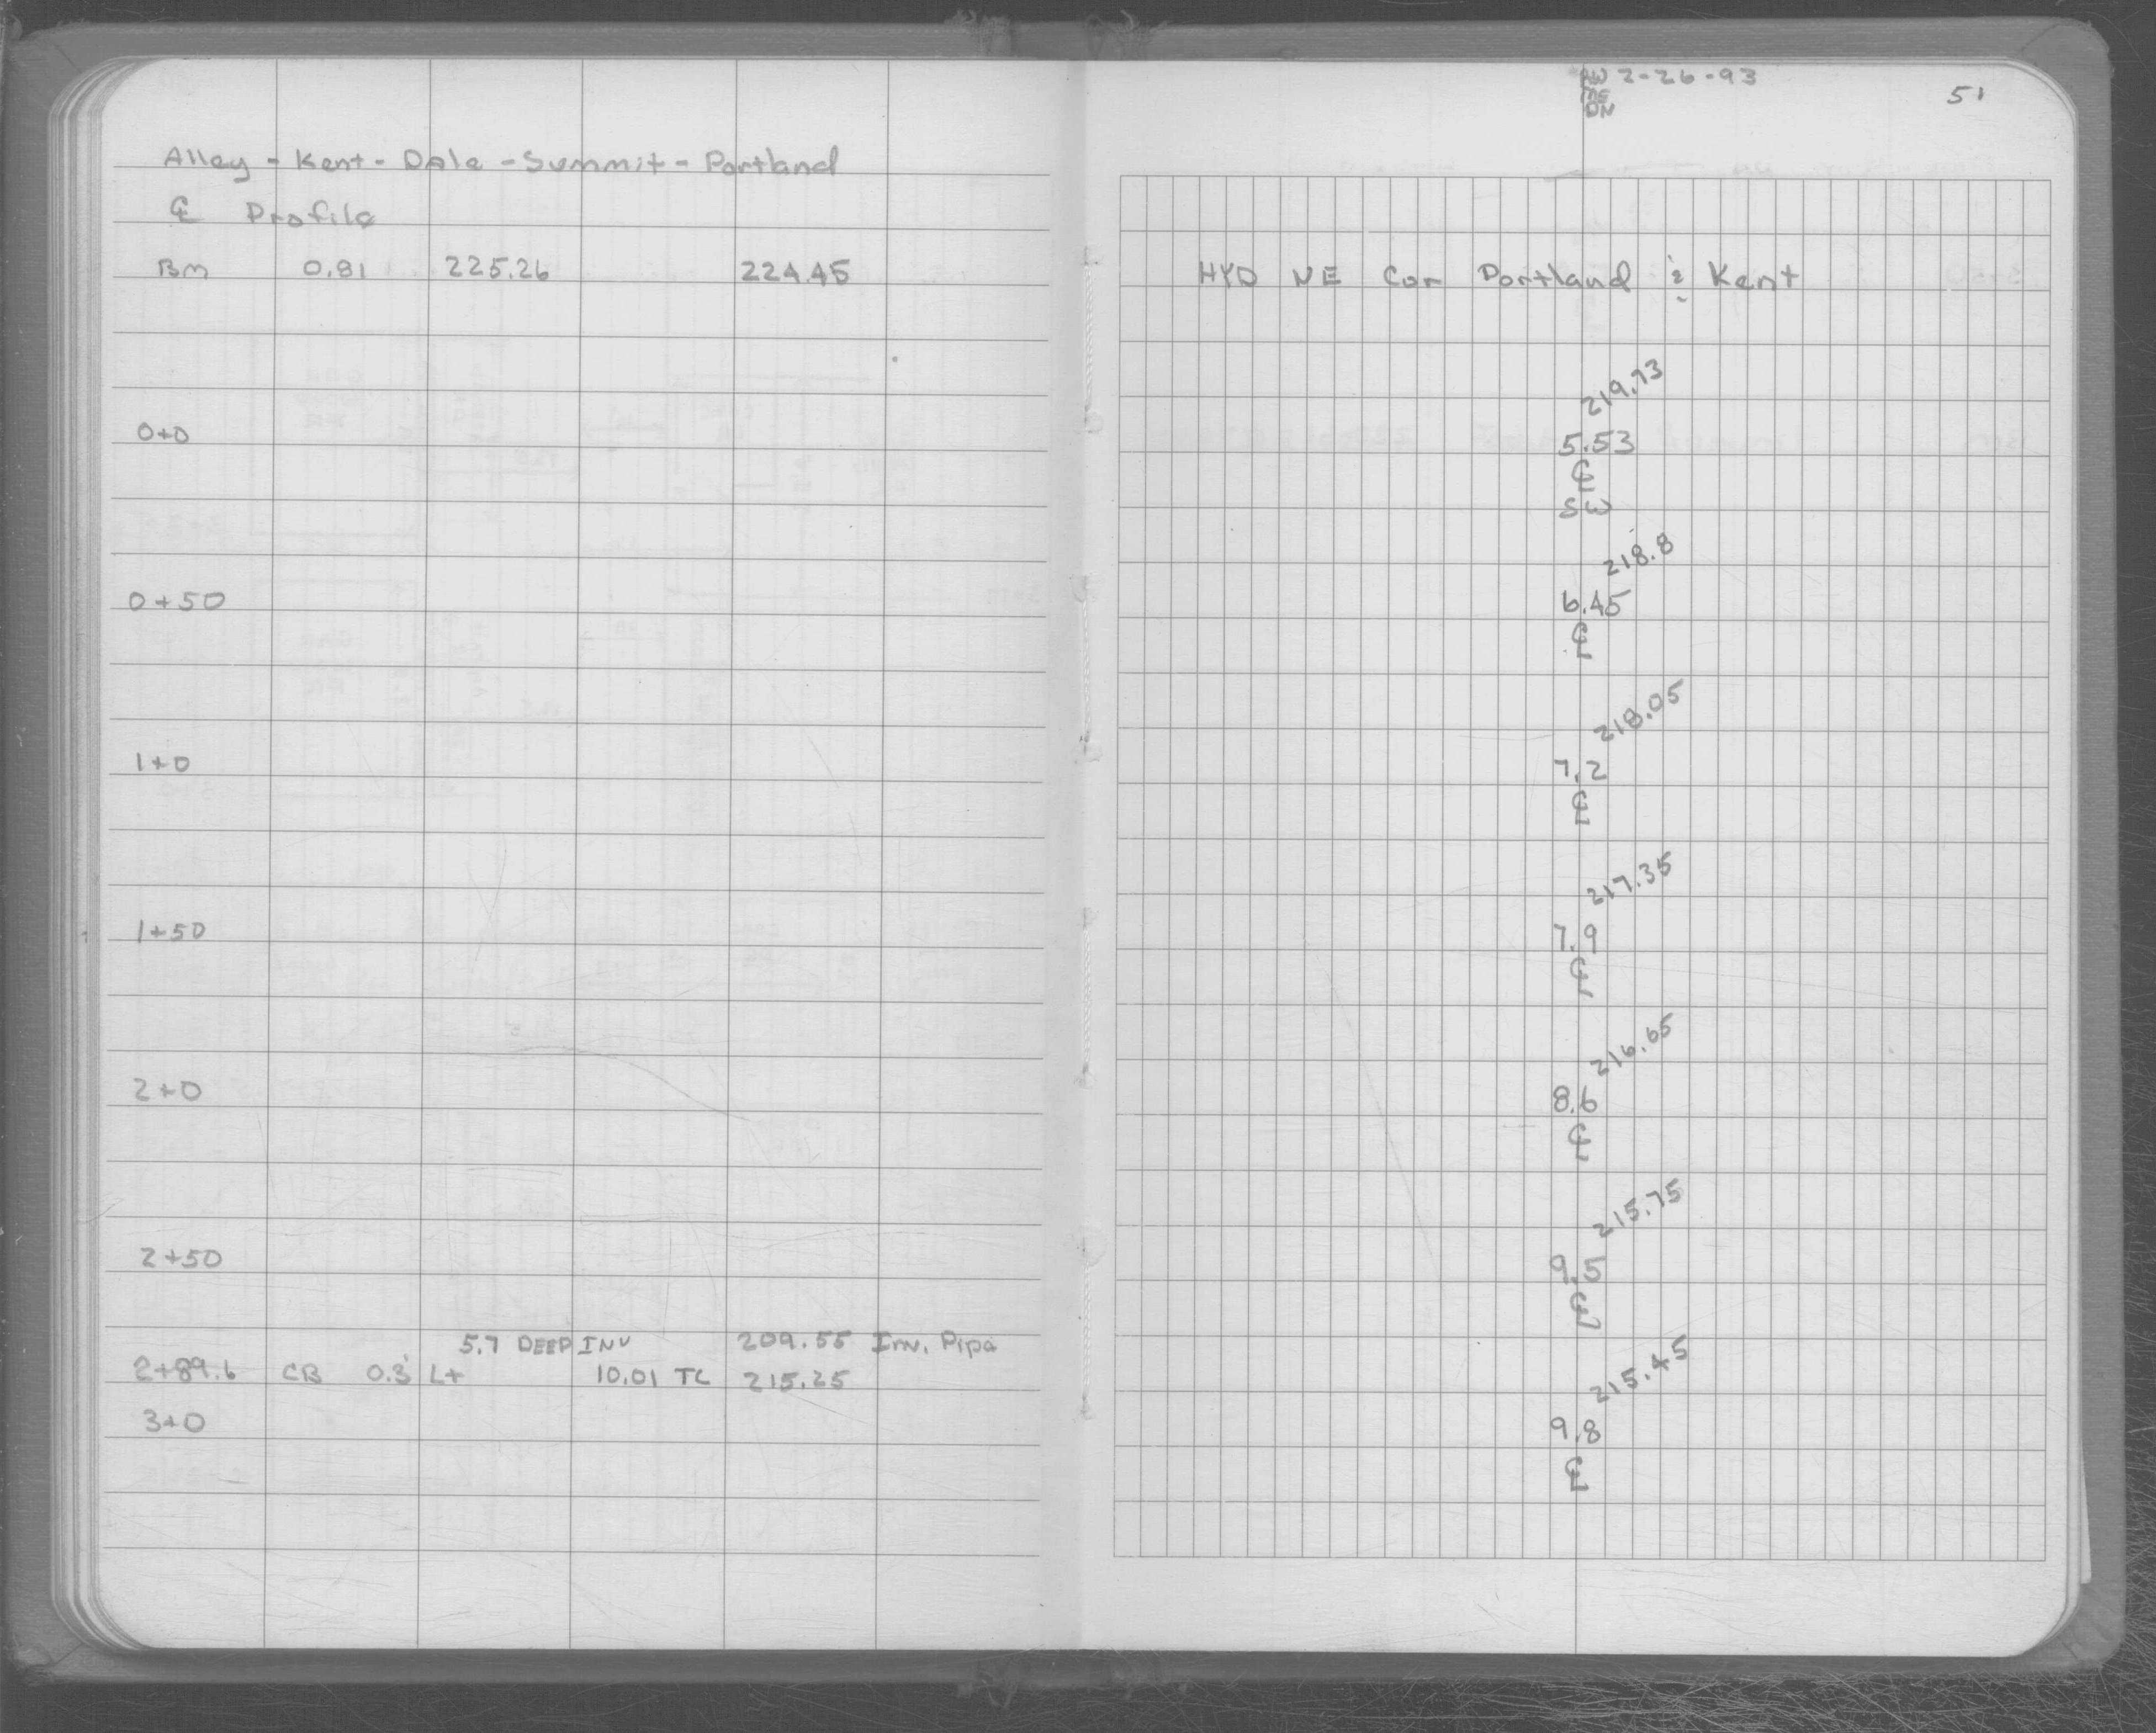 Alley - Kent - Dale - Summit - Portland
℄ Profile
BM 0.81 225.26 224.45
0+0
0+50
1+0
1+50
2+0
2+50
5.7 DEEP INV 209.55 Inv. Pipe
2+89.6 CB 0.3' Lt 10.01 TC 215.25
3+0
2-26-93
51
HYD NE Cor Portland & Kent
219.73
5.53
℄
SW
218.8
6.45
℄
218.05
7.2
℄
217.35
7.9
℄
216.65
8.6
℄
215.75
9.5
℄
215.45
9.8
℄